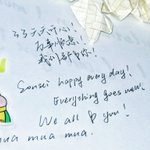 天天开心!
万事
我们都爱你!
Sensei happy every day!
Everything goes well!
We all ♡ you!
mua mua mua.